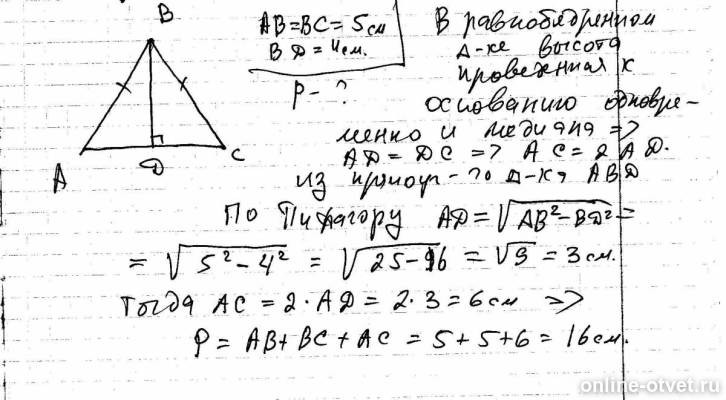 B
A
D
C
AB=BC=5см
BD=4см.
P-?
В равнобедренном
Δ-ке высота
проведенная к
основанию одновре-
менно и медиана =>
AD=DC => AC=2AD.
из прямоуг-го Δ-ка ABD
По Пифагору AD=√(AB²-BD²)=
=√(5²-4²)=√(25-16)=√9=3см.
Тогда AC=2·AD=2·3=6см =>
P=AB+BC+AC=5+5+6=16см.
online-otvet.ru